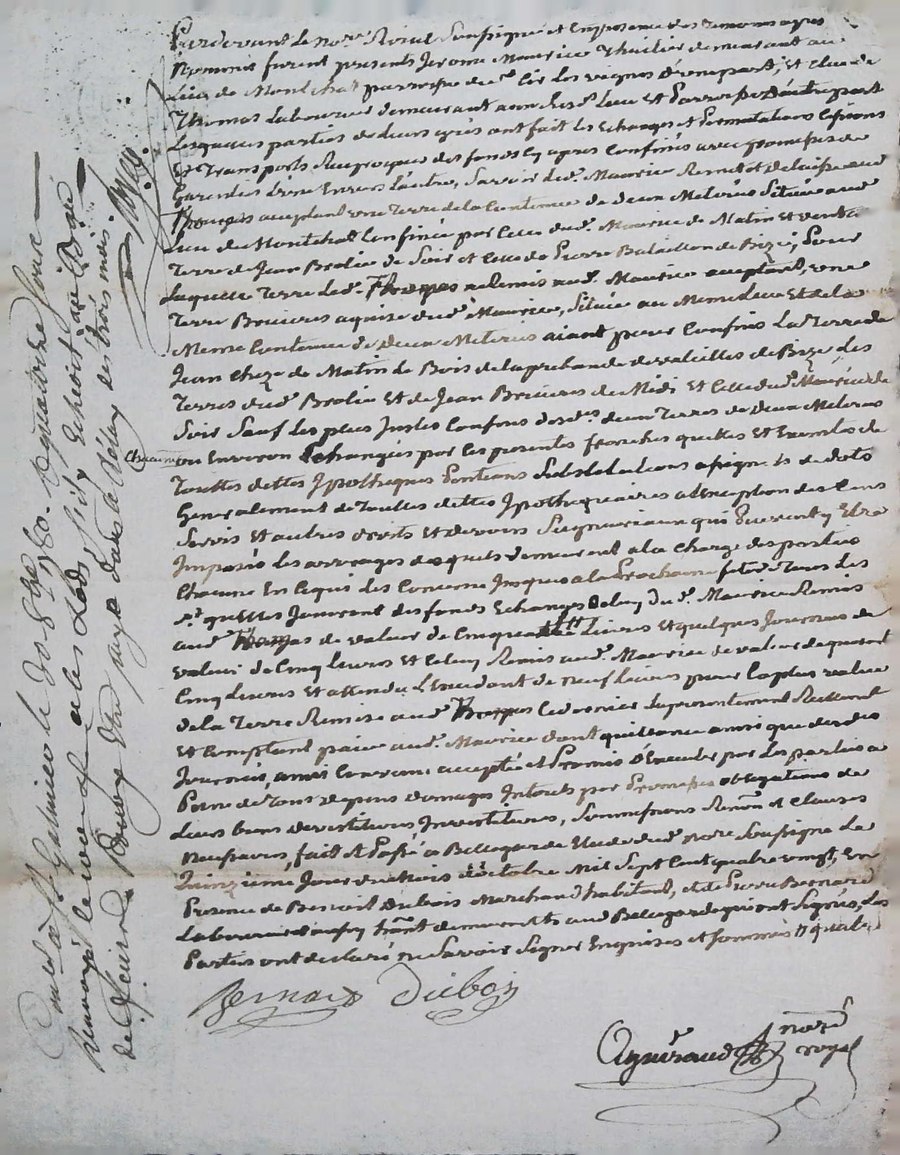 Pardevant le no.re Roial Soussigné et En presence des temoins apres
Nommés furent presents Jerome Maurice thuilier demeurant au
Lieu de Montchat parroisse de S.t Cir les vignes d'une part, et Claude
Thomas Laboureur demeurant aux susd. Lieu et Parroisse D'autre part
Lesquelles parties de leurs grés ont fait les Echanges et Permutations Cessions
Et Transports Reciproques des fonds Cy apres Confinés avec promesse de
Garentie L'une Envers L'autre, Savoir led. Maurice Remet et delaisse aud
Thomas acceptant une Terre de la Contenue de deux Meterées Située aud
Lieu de Montchat Confinée par Celle dud. Maurice de Matin et vent la
Terre de Jean Bralie de Soir et Celle de Pierre Bataillon de Bize; Pour
Laquelle Terre led. Thomas a Remis aud. Maurice acceptant, une
Terre Bruieres aquise dud. Maurice, Située au Meme Lieu Et de la
Meme Contenue de deux Meterées aiant pour Confins La Terre de
Jean Cheze de Matin le Bois de la prebande de de Bize Les
Terres dud. Bralie Et de Jean Bruieres de Midi Et Celle dud. Maurice de
Soir Sauf Les plus Justes Confins desd.s deux Terres de deux Meterées
Chacune ou Environ Echangées par les presentes franches quittes Et Exemptes de
Touttes dettes Ipotheques de dots
Generalement de Touttes dettes Ipothequaires a l'Exception des Cens
Servis Et autres droits Et devoirs Seigneuriaux qui peuvent y Etre
Imposés Les arrerages desquels demeurent a la Charge des parties
Chacune En Ce qui Les Concerne Jusques a la prochaine fete de Tous Les
S.ts qu'elles Jouiront des fonds Echangés Celuy dud. Maurice Remis
aud. Thomas de valeur de Cinquante Livres Et quelques Journaux de
valeur de Cinq Livres Et Celuy Remis aud. Maurice de valeur de quarante
Cinq Livres Et attendu L'Excedant de neuf Livres pour La plus value
de la Terre Remise aud. Thomas Ce dernier a presentement Reellement
Et Comptant paié aud. Maurice dont quittance ainsi que desd.
Journaux, ainsi Convenu accepté et Promis d'Executer par Les parties a
Peine de Tous depens domages Interets par Promesses obligations de
Leurs biens devestitures Investitures, Soummissions Renon. et Clauses
Necessaires, fait et Passé a Bellegarde Etude dud. no.re Soussigné Le
Quinzieme Jour du Mois d'Octobre Mil Sept Cent quatre vingt, En
Presence de Benoit Dubois Marchand habitant, et de Pierre Bernard
Laboureur demeurants aud. Bellegarde qui ont Signés, Les
Parties ont declaré ne Savoir Signer Enquises et Sommées
Bernard Dubois
Agniraud no.re royal
Con.lé a S.t Galmier le 30 8.bre 1780. R quatorze Sous
Renvoyé le et les Lods, Si y Echeoit au Bureau
de Feurs pour Etre payé dans le delay de trois mois.